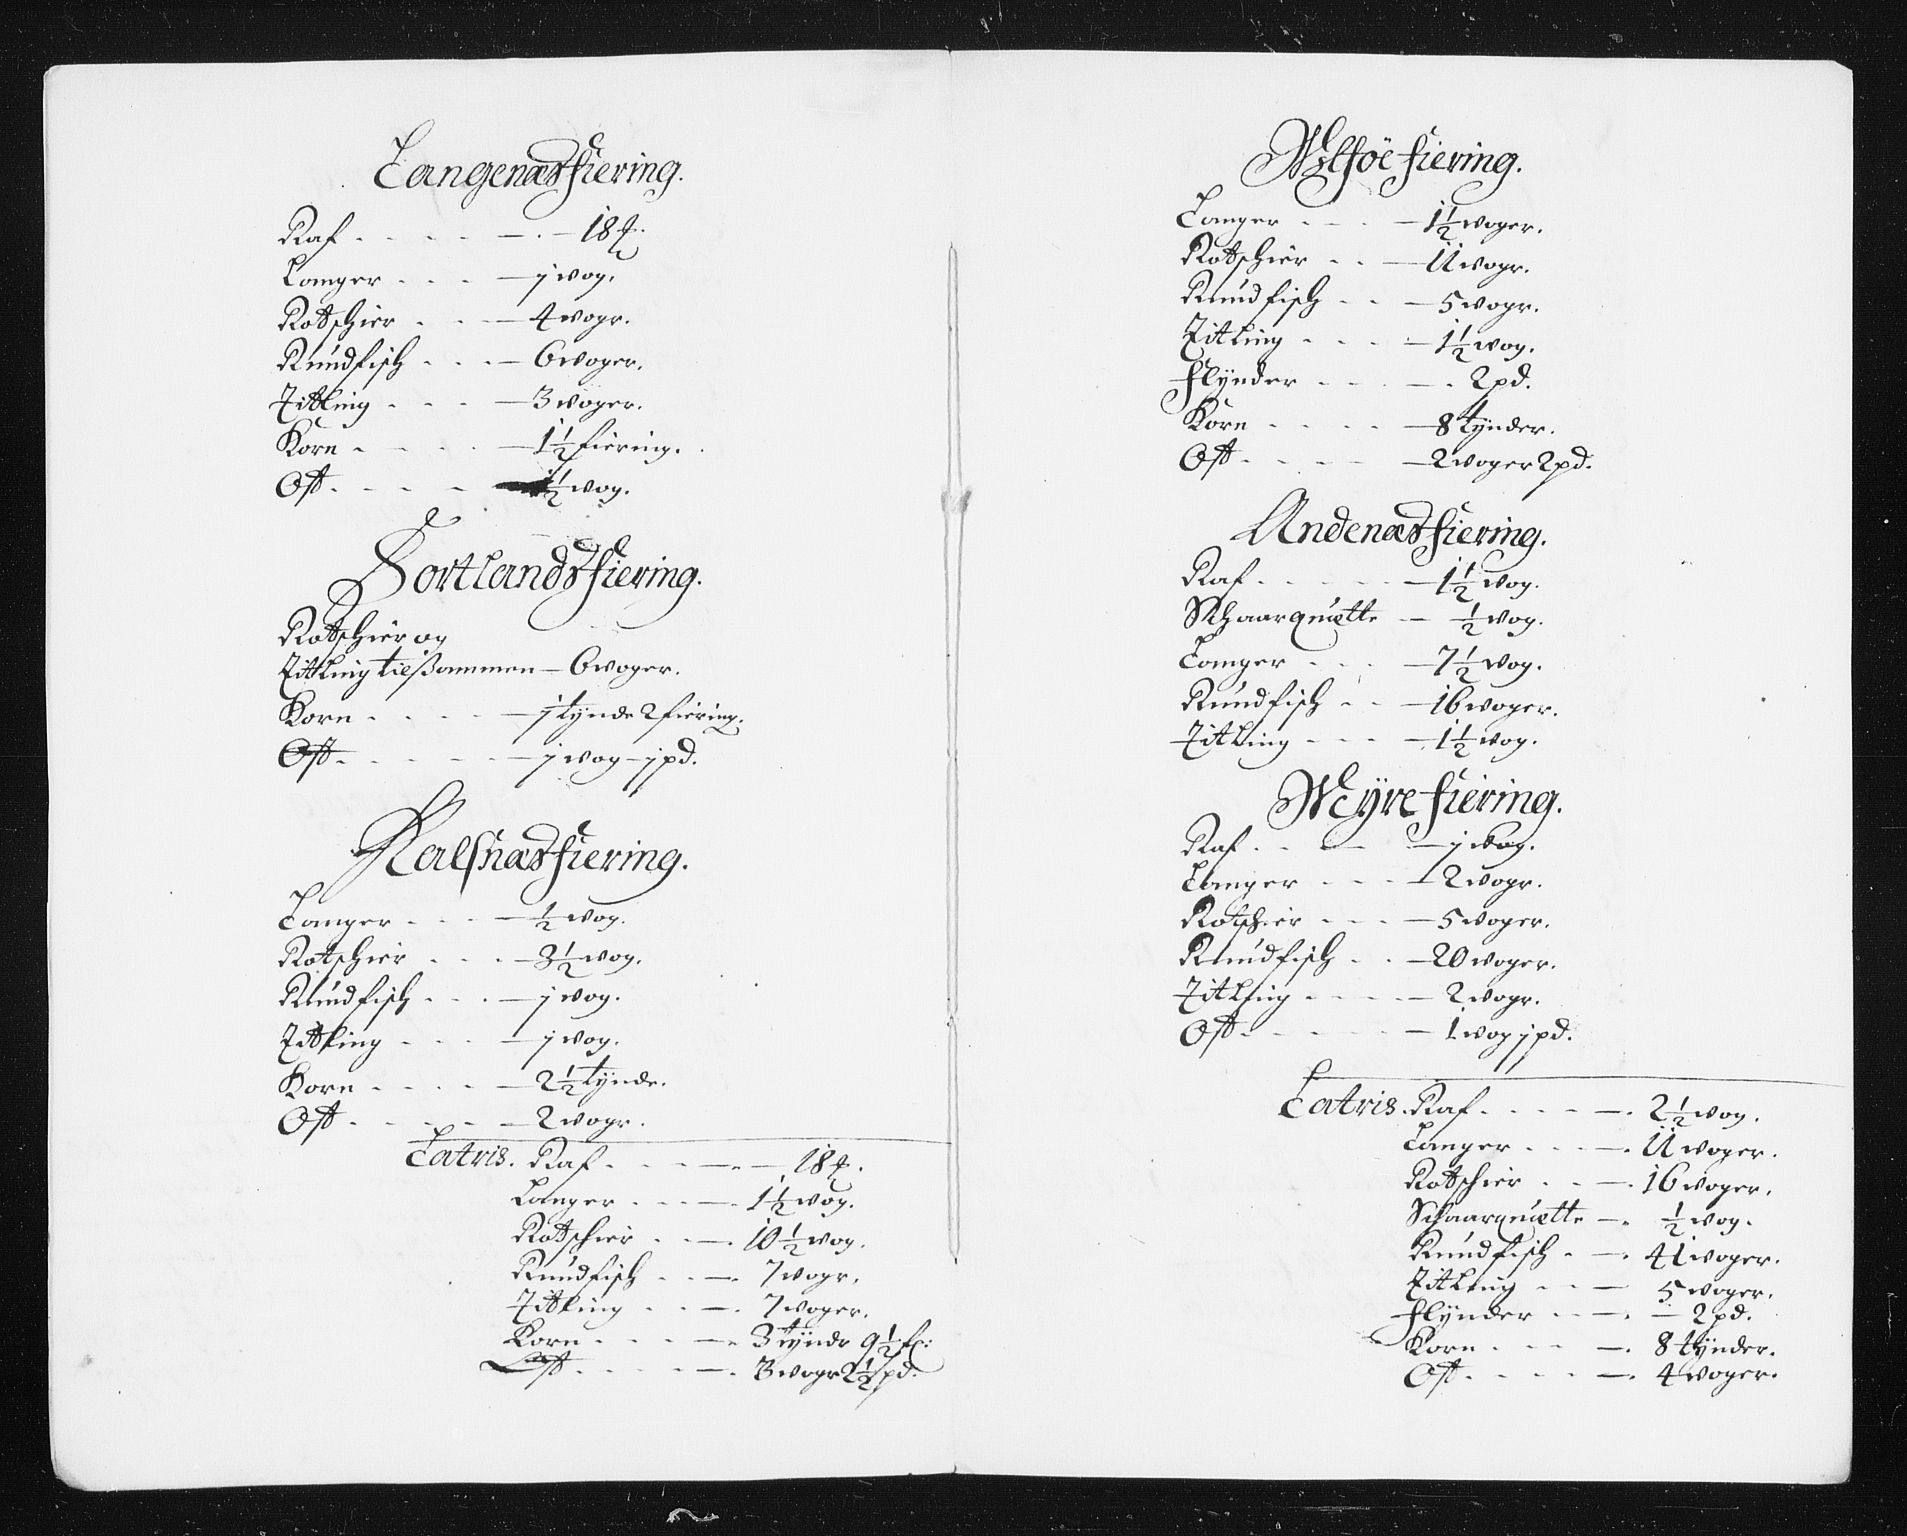 Langenæs fiering.
Raf - - - - 18 ℔.
Langer - - - j wog.
Rotschier - - - 4 wogr.
Rundfisch - - - 6 woger.
Titling - - - 3 woger.
Korn - - - - 1½ fiering.
Ost - - - - ½ wog.
Sortlands fiering.
Rotschier og
Titling tilsammen - 6 woger.
Korn - - - - j tynde 2 fiering.
Ost - - - - j wog - j pd.
Kalsnæs fiering.
Langer - - - ½ wog.
Rotschier - - - 3½ wog.
Rundfisch - - - j wog.
Titling - - - j wog.
Korn - - - - 2½ tynde.
Ost - - - - 2 wogr.
Latris. Raf - - - - 18 ℔.
Langer - - - 1½ wog.
Rotschier - - - 10½ wog.
Rundfisch - - - 7 wogr.
Titling - - - 7 woger.
Korn - - - - 3 tyndr 9½ fr:
Ost - - - - 3 wogr 2½ pd.
fiering.
Langer - - - 1½ woger.
Rotschier - - - 11 wogr.
Rundfisch - - - 5 wogr.
Titling - - - 1½ wog.
flÿnder - - - 2 pd.
Korn - - - - 8 tÿnder.
Ost - - - - 2 woger 2 pd.
Andenæs fiering.
Raf - - - - 1½ wog.
Schaarquætte - ½ wog.
Langer - - - 7½ wog.
Rundfisch - - - 16 woger.
Titling - - - 1½ wog.
Mÿre fiering.
Raf - - - - j wog.
Langer - - - 2 wogr.
Rotschier - - - 5 woger.
Rundfisch - - - 20 woger.
Titling - - - - 2 wogr.
Ost - - - - 1 wog j pd.
Latris. Raf - - - - 2½ wog.
Langer - - - 11 woger.
Rotschier - - - 16 woger.
Schaarquætte - ½ wog.
Rundfisch - - 41 woger.
Titling - - - 5 woger.
flÿnder - - - 2 pd.
Korn - - - - 8 tÿnder.
Ost - - - - 4 woger.